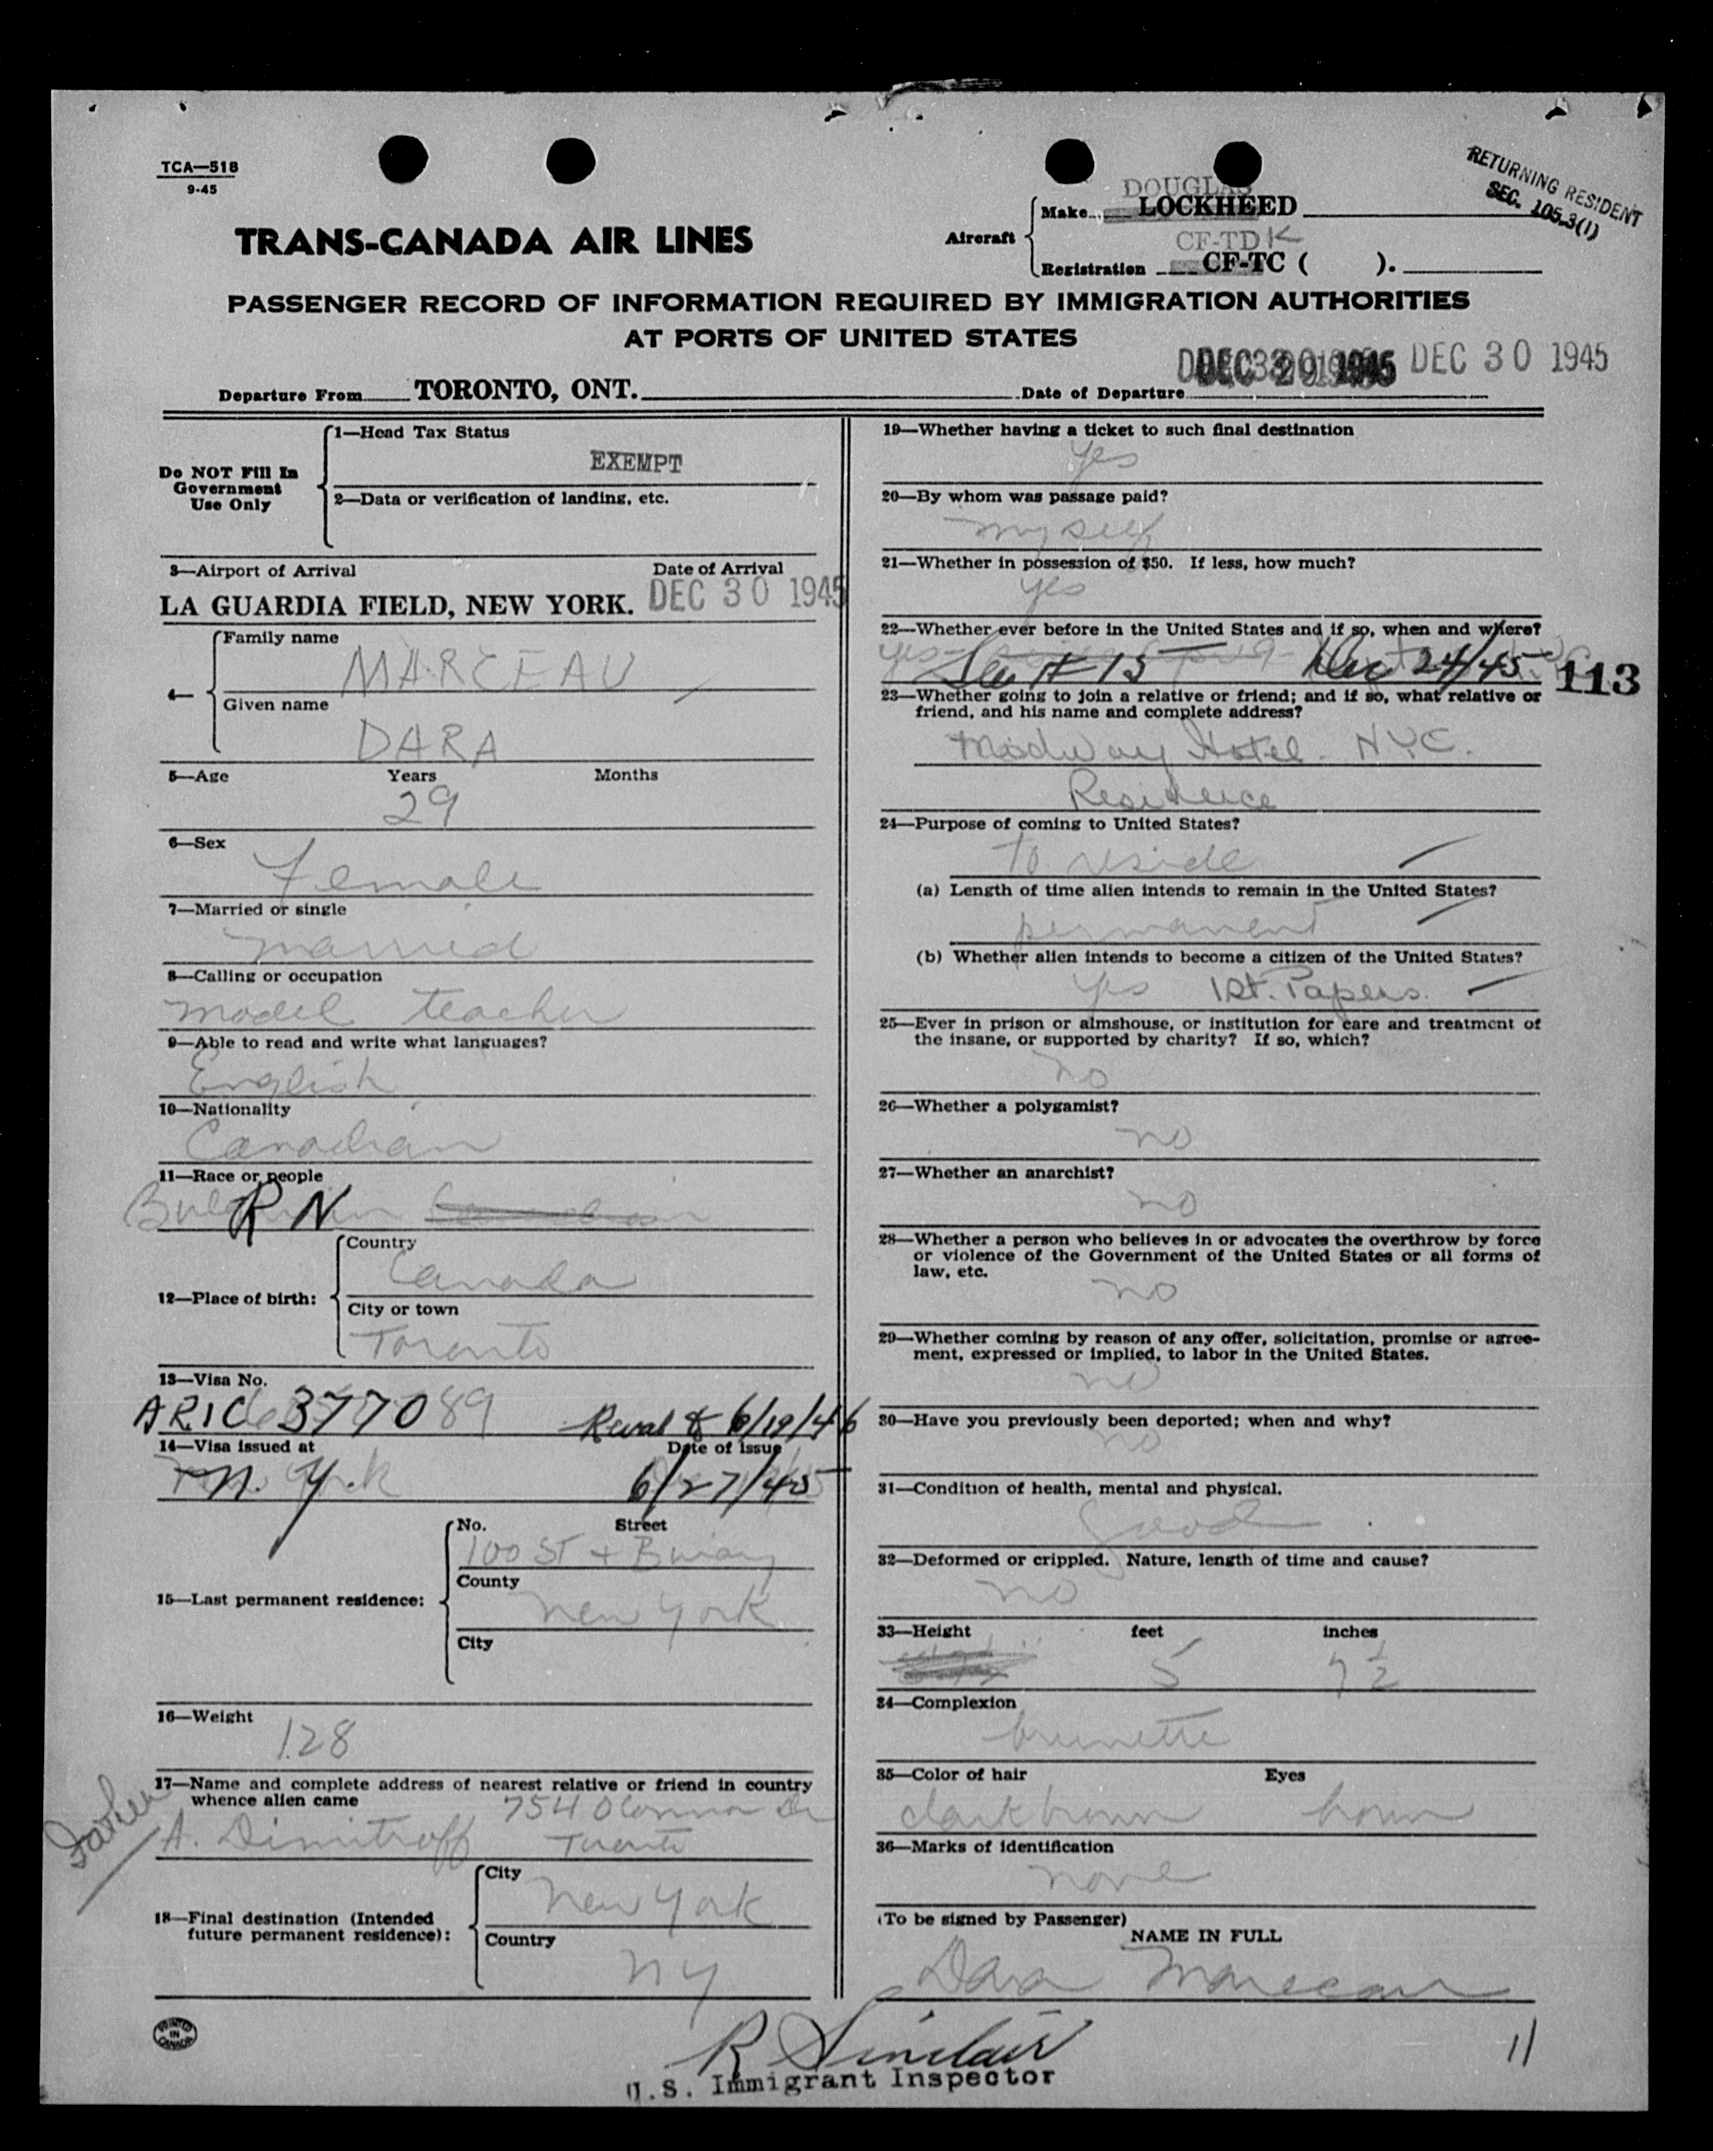 TCA—518
9-45
RETURNING RESIDENT
SEC. 105.3(1)
TRANS-CANADA AIR LINES
Aircraft
DOUGLAS
Make LOCKHEED
CF-TDK
Registration CF-TC ( ).
PASSENGER RECORD OF INFORMATION REQUIRED BY IMMIGRATION AUTHORITIES
AT PORTS OF UNITED STATES
Departure From TORONTO, ONT.
Date of Departure DEC 30 1945
Do NOT Fill In
Government
Use Only
1—Head Tax Status
EXEMPT
2—Data or verification of landing, etc.
3—Airport of Arrival Date of Arrival
LA GUARDIA FIELD, NEW YORK. DEC 30 1945
4—
Family name
MARCEAU
Given name
DARA
5—Age Years Months
29
6—Sex
Female
7—Married or single
married
8—Calling or occupation
model teacher
9—Able to read and write what languages?
English
10—Nationality
Canadian
11—Race or people
R N
12—Place of birth:
Country
Canada
City or town
Toronto
13—Visa No.
ARIC 377089 6/19/46
14—Visa issued at Date of Issue
N.Y. 6/27/45
15—Last permanent residence:
No. Street
100 ST + Bway
County
New York
City
16—Weight
128
17—Name and complete address of nearest relative or friend in country
whence alien came
Father
754 OConnor Dr
A. Dimitroff Toronto
18—Final destination (Intended
future permanent residence):
City
New York
Country
NY
19—Whether having a ticket to such final destination
yes
20—By whom was passage paid?
myself
21—Whether in possession of $50. If less, how much?
yes
22—Whether ever before in the United States and if so, when and where?
yes See # 15 Dec 24/45
113
23—Whether going to join a relative or friend; and if so, what relative or
friend, and his name and complete address?
Midway Hotel - N.Y.C.
Residence
24—Purpose of coming to United States?
to reside
(a) Length of time alien intends to remain in the United States?
permanent
(b) Whether alien intends to become a citizen of the United States?
yes 1st. Papers.
25—Ever in prison or almshouse, or institution for care and treatment of
the insane, or supported by charity? If so, which?
no
26—Whether a polygamist?
no
27—Whether an anarchist?
no
28—Whether a person who believes in or advocates the overthrow by force
or violence of the Government of the United States or all forms of
law, etc.
no
29—Whether coming by reason of any offer, solicitation, promise or agree-
ment, expressed or implied, to labor in the United States.
no
30—Have you previously been deported; when and why?
no
31—Condition of health, mental and physical.
Good
32—Deformed or crippled. Nature, length of time and cause?
no
33—Height feet inches
5 7½
34—Complexion
brunette
35—Color of hair Eyes
dark brown brown
36—Marks of identification
none
(To be signed by Passenger)
NAME IN FULL
Dara Marceau
PRINTED
IN
CANADA
R Sinclair
U.S. Immigrant Inspector
11